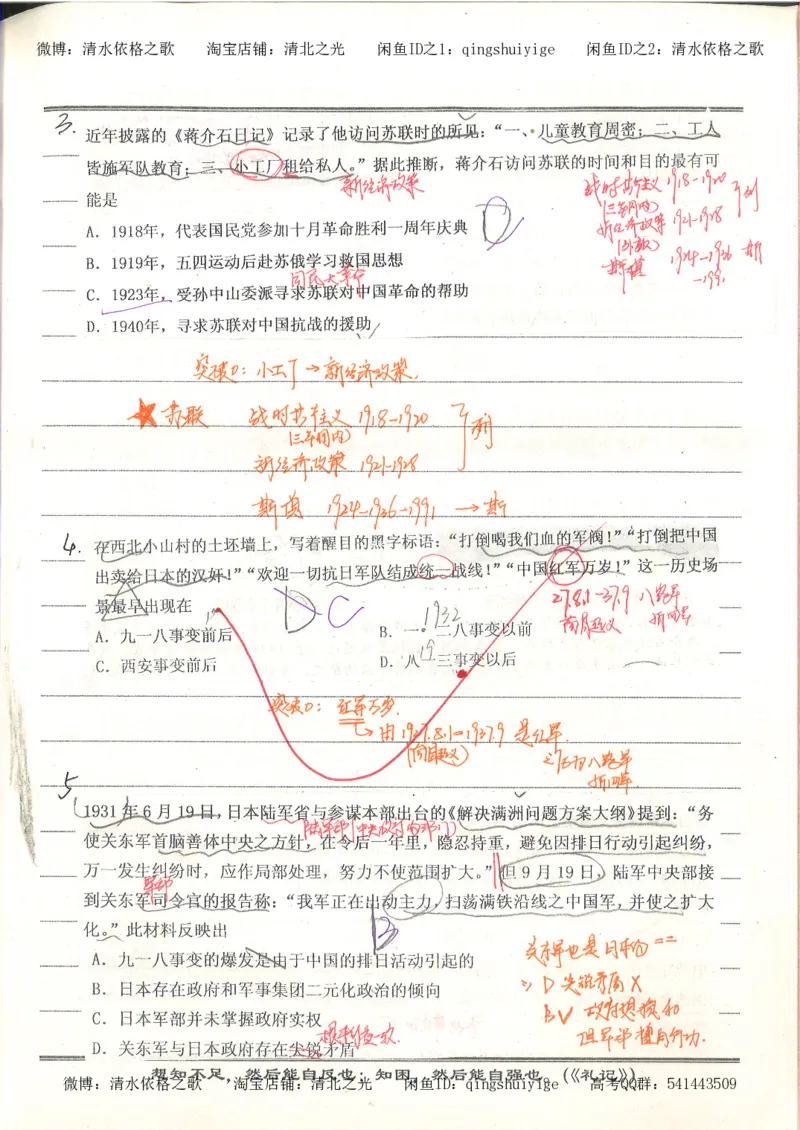 微博：清水依格之歌 淘宝店铺：清北之光 闲鱼ID之1：qingshuiyige 闲鱼ID之2：清水依格之歌
3. 近年披露的《蒋介石日记》记录了他访问苏联时的所见：“一、儿童教育周密；二、工人
皆施军队教育；三、小工厂租给私人。”据此推断，蒋介石访问苏联的时间和目的最有可
新经济政策
能是
战时共产主义 1918-1920 列
(三年国内)
新经济政策 1921-1928
斯模 1924-1926 斯
-1991
A. 1918年，代表国民党参加十月革命胜利一周年庆典
D
B. 1919年，五四运动后赴苏俄学习救国思想
国民大革命
C. 1923年，受孙中山委派寻求苏联对中国革命的帮助
D. 1940年，寻求苏联对中国抗战的援助
突破口：小工厂→新经济政策.
★苏联 战时共产主义 1918-1920 列
(三年国内)
新经济政策 1921-1928
斯模 1924-1926-1991 →斯
4. 在西北小山村的土坯墙上，写着醒目的黑字标语：“打倒喝我们血的军阀！”“打倒把中国
出卖给日本的汉奸！”“欢迎一切抗日军队结成统一战线！”“中国红军万岁！”这一历史场
景最早出现在
D C
1932
27.8.1-37.9 八路军
A. 九一八事变前后 B. 一·二八事变以前
C. 西安事变前后 D. 八一三事变以后
突破口：红军万岁.
→由1927.8.1-1937.9 是红军
之后为八路军
5
1931年6月19日，日本陆军省与参谋本部出台的《解决满洲问题方案大纲》提到：“务
使关东军首脑善体中央之方针，在令后一年里，隐忍持重，避免因排日行动引起纠纷，
万一发生纠纷时，应作局部处理，努力不使范围扩大。”但9月19日，陆军中央部接
到关东军司令官的报告称：“我军正在出动主力，扫荡满铁沿线之中国军，并使之扩大
化。”此材料反映出
B
A. 九一八事变的爆发是由于中国的排日活动引起的
B. 日本存在政府和军事集团二元化政治的倾向
C. 日本军部并未掌握政府实权
D. 关东军与日本政府存在尖锐矛盾
根本利益一致
关东军也是日本的
∴ D 尖锐矛盾 X
B√
想知不足，然后能自反也；知困，然后能自强也。(《礼记》)
微博：清水依格之歌 淘宝店铺：清北之光 闲鱼ID：qingshuiyige 高考QQ群：541443509